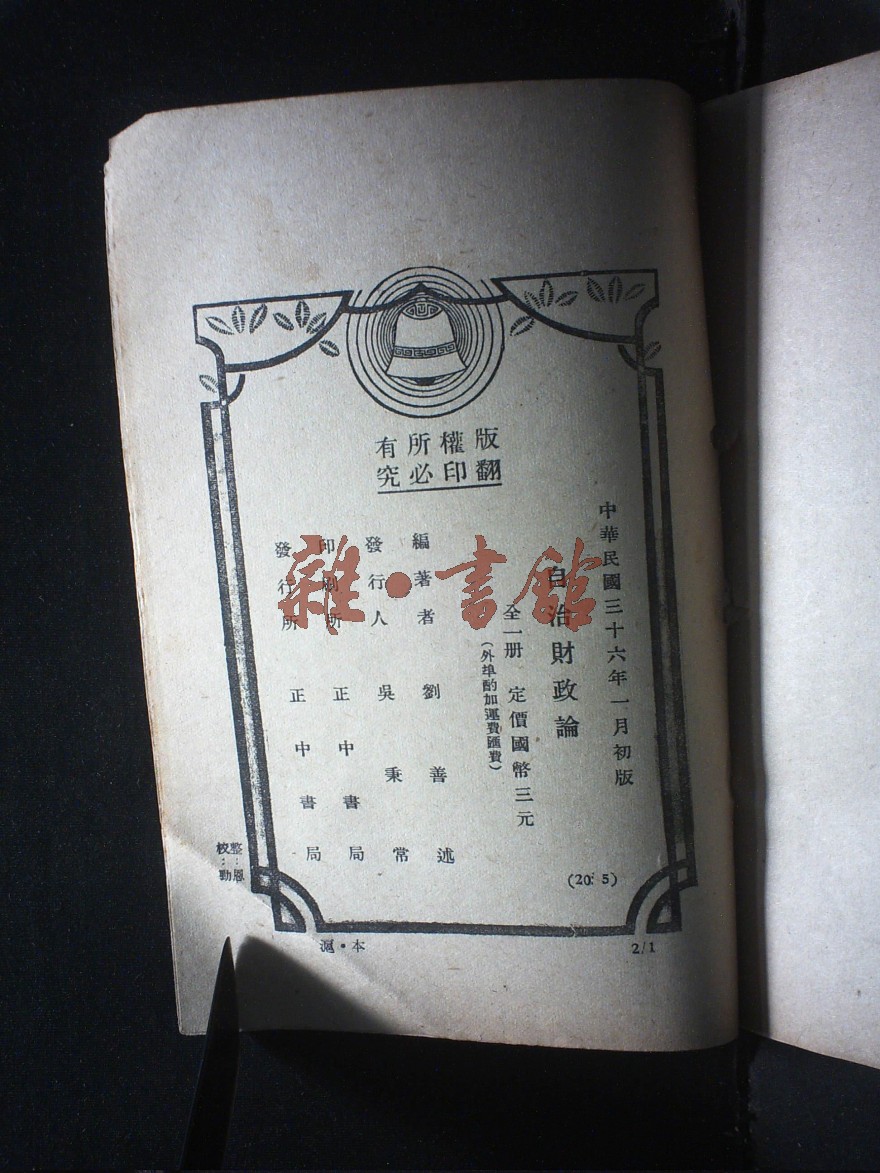 版權所有
翻印必究
中華民國三十六年一月初版
自治財政論
全一册 定價國幣三元
(外埠酌加運費匯費)
編著者 劉善述
發行人 吳秉常
印刷所 正中書局
發行所 正中書局
(20: 5)
整:恩
校:勁
滬·本
2/1
雜·書館